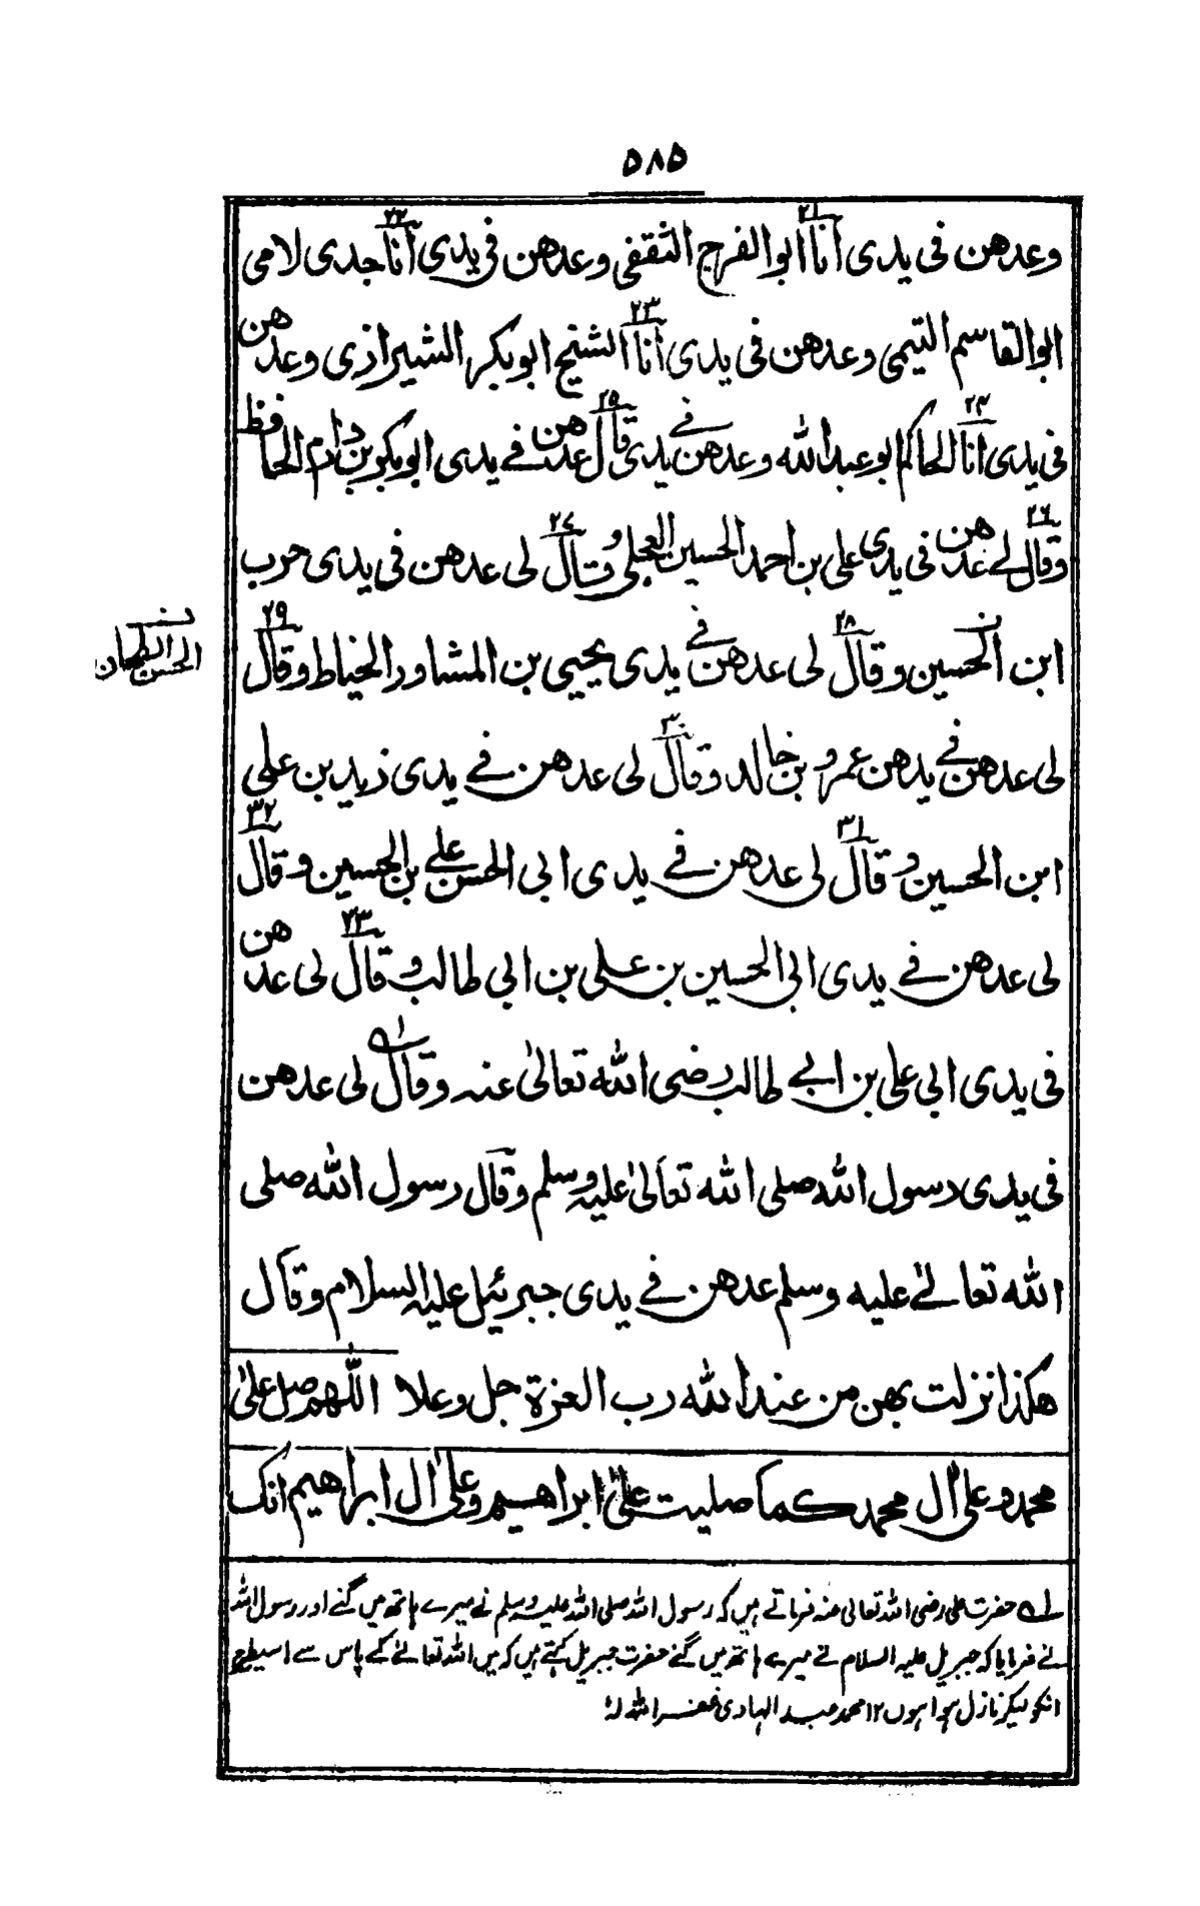 ۵۸۵
وعدهن فی یدی انا ۲۱ ابوالفرج الثقفی وعدهن فی یدی انا ۲۲ جدی لامی
ابوالقاسم التیمی وعدهن فی یدی انا ۲۳ الشیخ ابوبکر الشیرازی وعدهن
فی یدی انا ۲۴ الحاکم ابو عبدالله وعدهن فے یدی قال ۲۵ عدهن فے یدی ابوبکر بن دارم الحافظ
وقال ۲۶ لے عدهن فی یدی علی بن احمد الحسین العجلی وقال ۲۷ لی عدهن فی یدی حرب
ابن الحسین وقال ۲۸ لی عدهن فے یدی یحیی بن المشاور الخیاط وقال ۲۹
الحسن الطحان
لی عدهن فے یدهن عمرو بن خالد وقال ۳۰ لی عدهن فے یدی زید بن علی
ابن الحسین وقال ۳۱ لی عدهن فے یدی ابی الحسن علے بن الحسین وقال ۳۲
لی عدهن فے یدی ابی الحسین بن علی بن ابی طالب وقال ۳۳ لی عدهن
فی یدی ابی علی بن ابے طالب رضی الله تعالیٰ عنه وقال لی عدهن
فی یدی رسول الله صلی الله تعالیٰ علیه وسلم وقال رسول الله صلی
الله تعالےٰ علیه وسلم عدهن فے یدی جبرئیل علیه السلام وقال
هکذا نزلت بهن من عند الله رب العزة جل وعلا اللهم صل علیٰ
محمد وعلی اٰل محمد کما صلیت علیٰ ابراهیم وعلیٰ اٰل ابراهیم انک
لے حضرت علی رضی اللہ تعالیٰ عنہ فرماتے ہیں کہ رسول اللہ صلی اللہ علیہ وسلم نے میرے ہاتھ میں گنے اور رسول اللہ
نے فرمایا کہ جبریل علیہ السلام نے میرے ہاتھ میں گنے حضرت جبریل کہتے ہیں کہ میں اللہ تعالےٰ کے پاس سے اسیطرح
انکو لیکر نازل ہوا ہوں ۱۲ محمد عبد الہادی غفر اللہ لہٗ